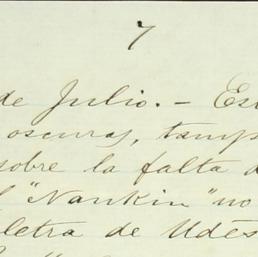 7
de Julio. - Es
oscuras, tamp
sobre la falta d
"Nankin" no
letra de Udes